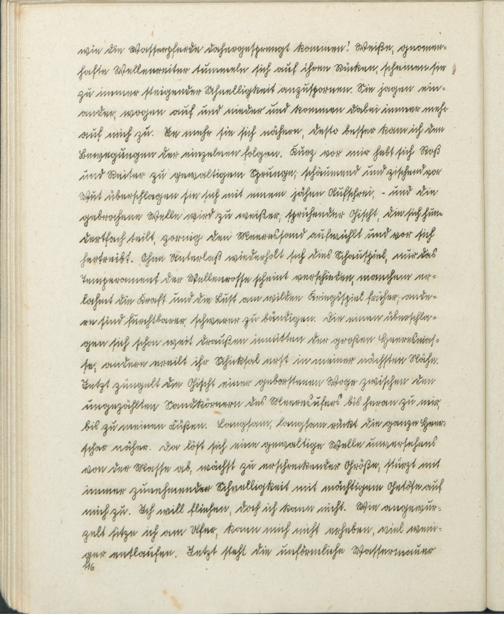 wie die Wasserpferde dahergesprengt kommen! Weiße, gnomen-
hafte Wellenreiter tummeln sich auf ihren Rücken, scheinen sie
zu immer steigender Schnelligkeit anzuspornen. Sie jagen ein-
ander, wogen auf und nieder und kommen dabei immer mehr
auf mich zu. Je mehr sie sich nähern, desto besser kann ich den
Bewegungen der einzelnen folgen. Kurz vor mir hebt sich Roß
und Reiter zu gewaltigem Sprunge, schäumend und zischend vor
Wut überschlagen sie sich mit einem jähen Aufschrei, - und die
gebrochene Welle wird zu weißer, sprühender Gischt, die sich hun-
dertfach teilt, zornig den Meeressand aufwühlt und vor sich
hertreibt. Ohne Unterlaß wiederholt sich dies Schauspiel, nur das
Temperament der Wellenrosse scheint verschieden, manchem er-
lahmt die Kraft und die Lust am wilden Kriegsspiel früher, ande-
re sind furchtbarer, schwerer zu bändigen. Die einen überschla-
gen sich schon weit draußen inmitten der großen Heeresmas-
se, andere ereilt ihr Schicksal erst in meiner nächsten Nähe.
Jetzt züngelt die Gischt einer geborstenen Woge zwischen den
ungezählten Sandkörnern des Meeresufers bis heran zu mir,
bis zu meinen Füßen. Langsam, langsam rückt die ganze Heer-
schar näher. Da löst sich eine gewaltige Welle unversehens
von der Masse ab, wächst zu erschreckender Größe, stürzt mit
immer zunehmender Schnelligkeit mit mächtigem Getöse auf
mich zu. Ich will fliehen, doch ich kann nicht. Wie angewur-
zelt sitze ich am Ufer, kann mich nicht erheben, viel weni-
ger entlaufen. Jetzt steht die unförmliche Wassermauer
116